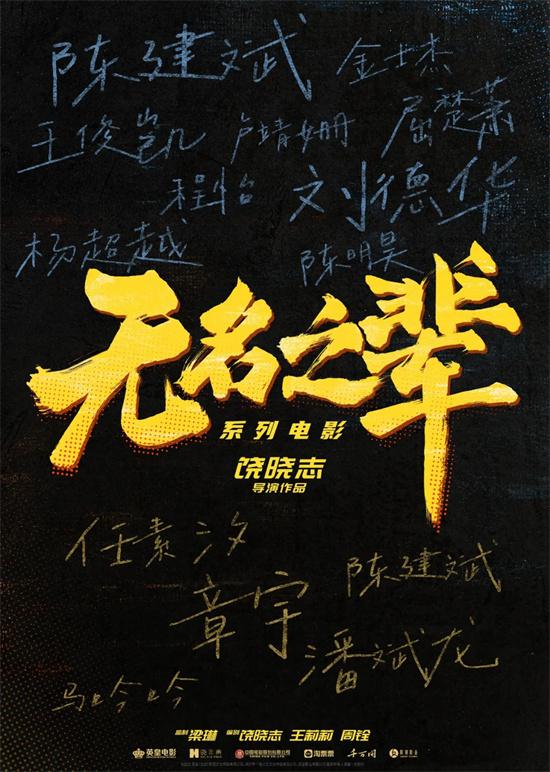 陈建斌 金士杰
王俊凯 卢靖姗 屈楚萧
程怡 刘德华
杨超越 陈明昊
无名之辈
系列电影
饶晓志
导演作品
任素汐 陈建斌
章宇
潘斌龙
马吟吟
监制 梁琳 编剧 饶晓志 王莉莉 周铨
英皇电影 淘票票